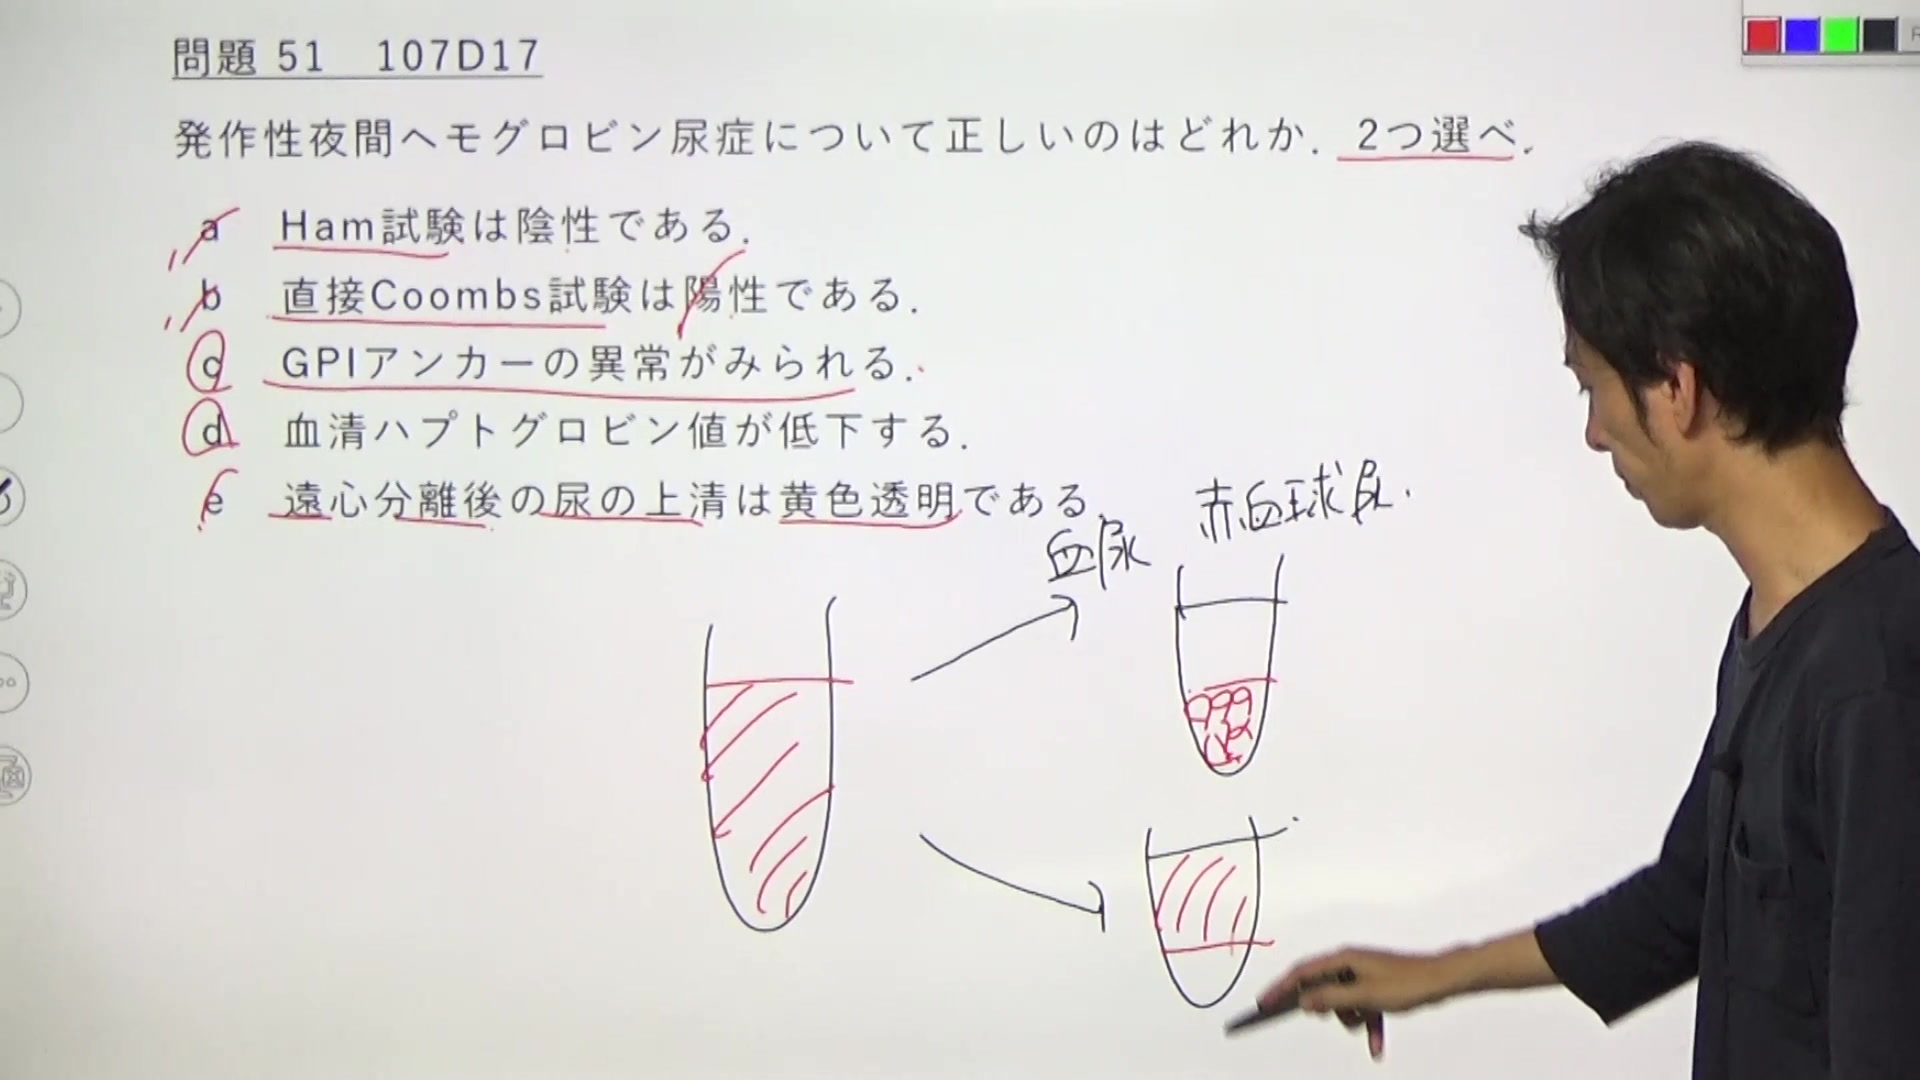 問題 51 107D17
発作性夜間ヘモグロビン尿症について正しいのはどれか. 2つ選べ.
a Ham試験は陰性である.
b 直接Coombs試験は陽性である.
c GPIアンカーの異常がみられる.
d 血清ハプトグロビン値が低下する.
e 遠心分離後の尿の上清は黄色透明である.
血尿
赤血球尿.